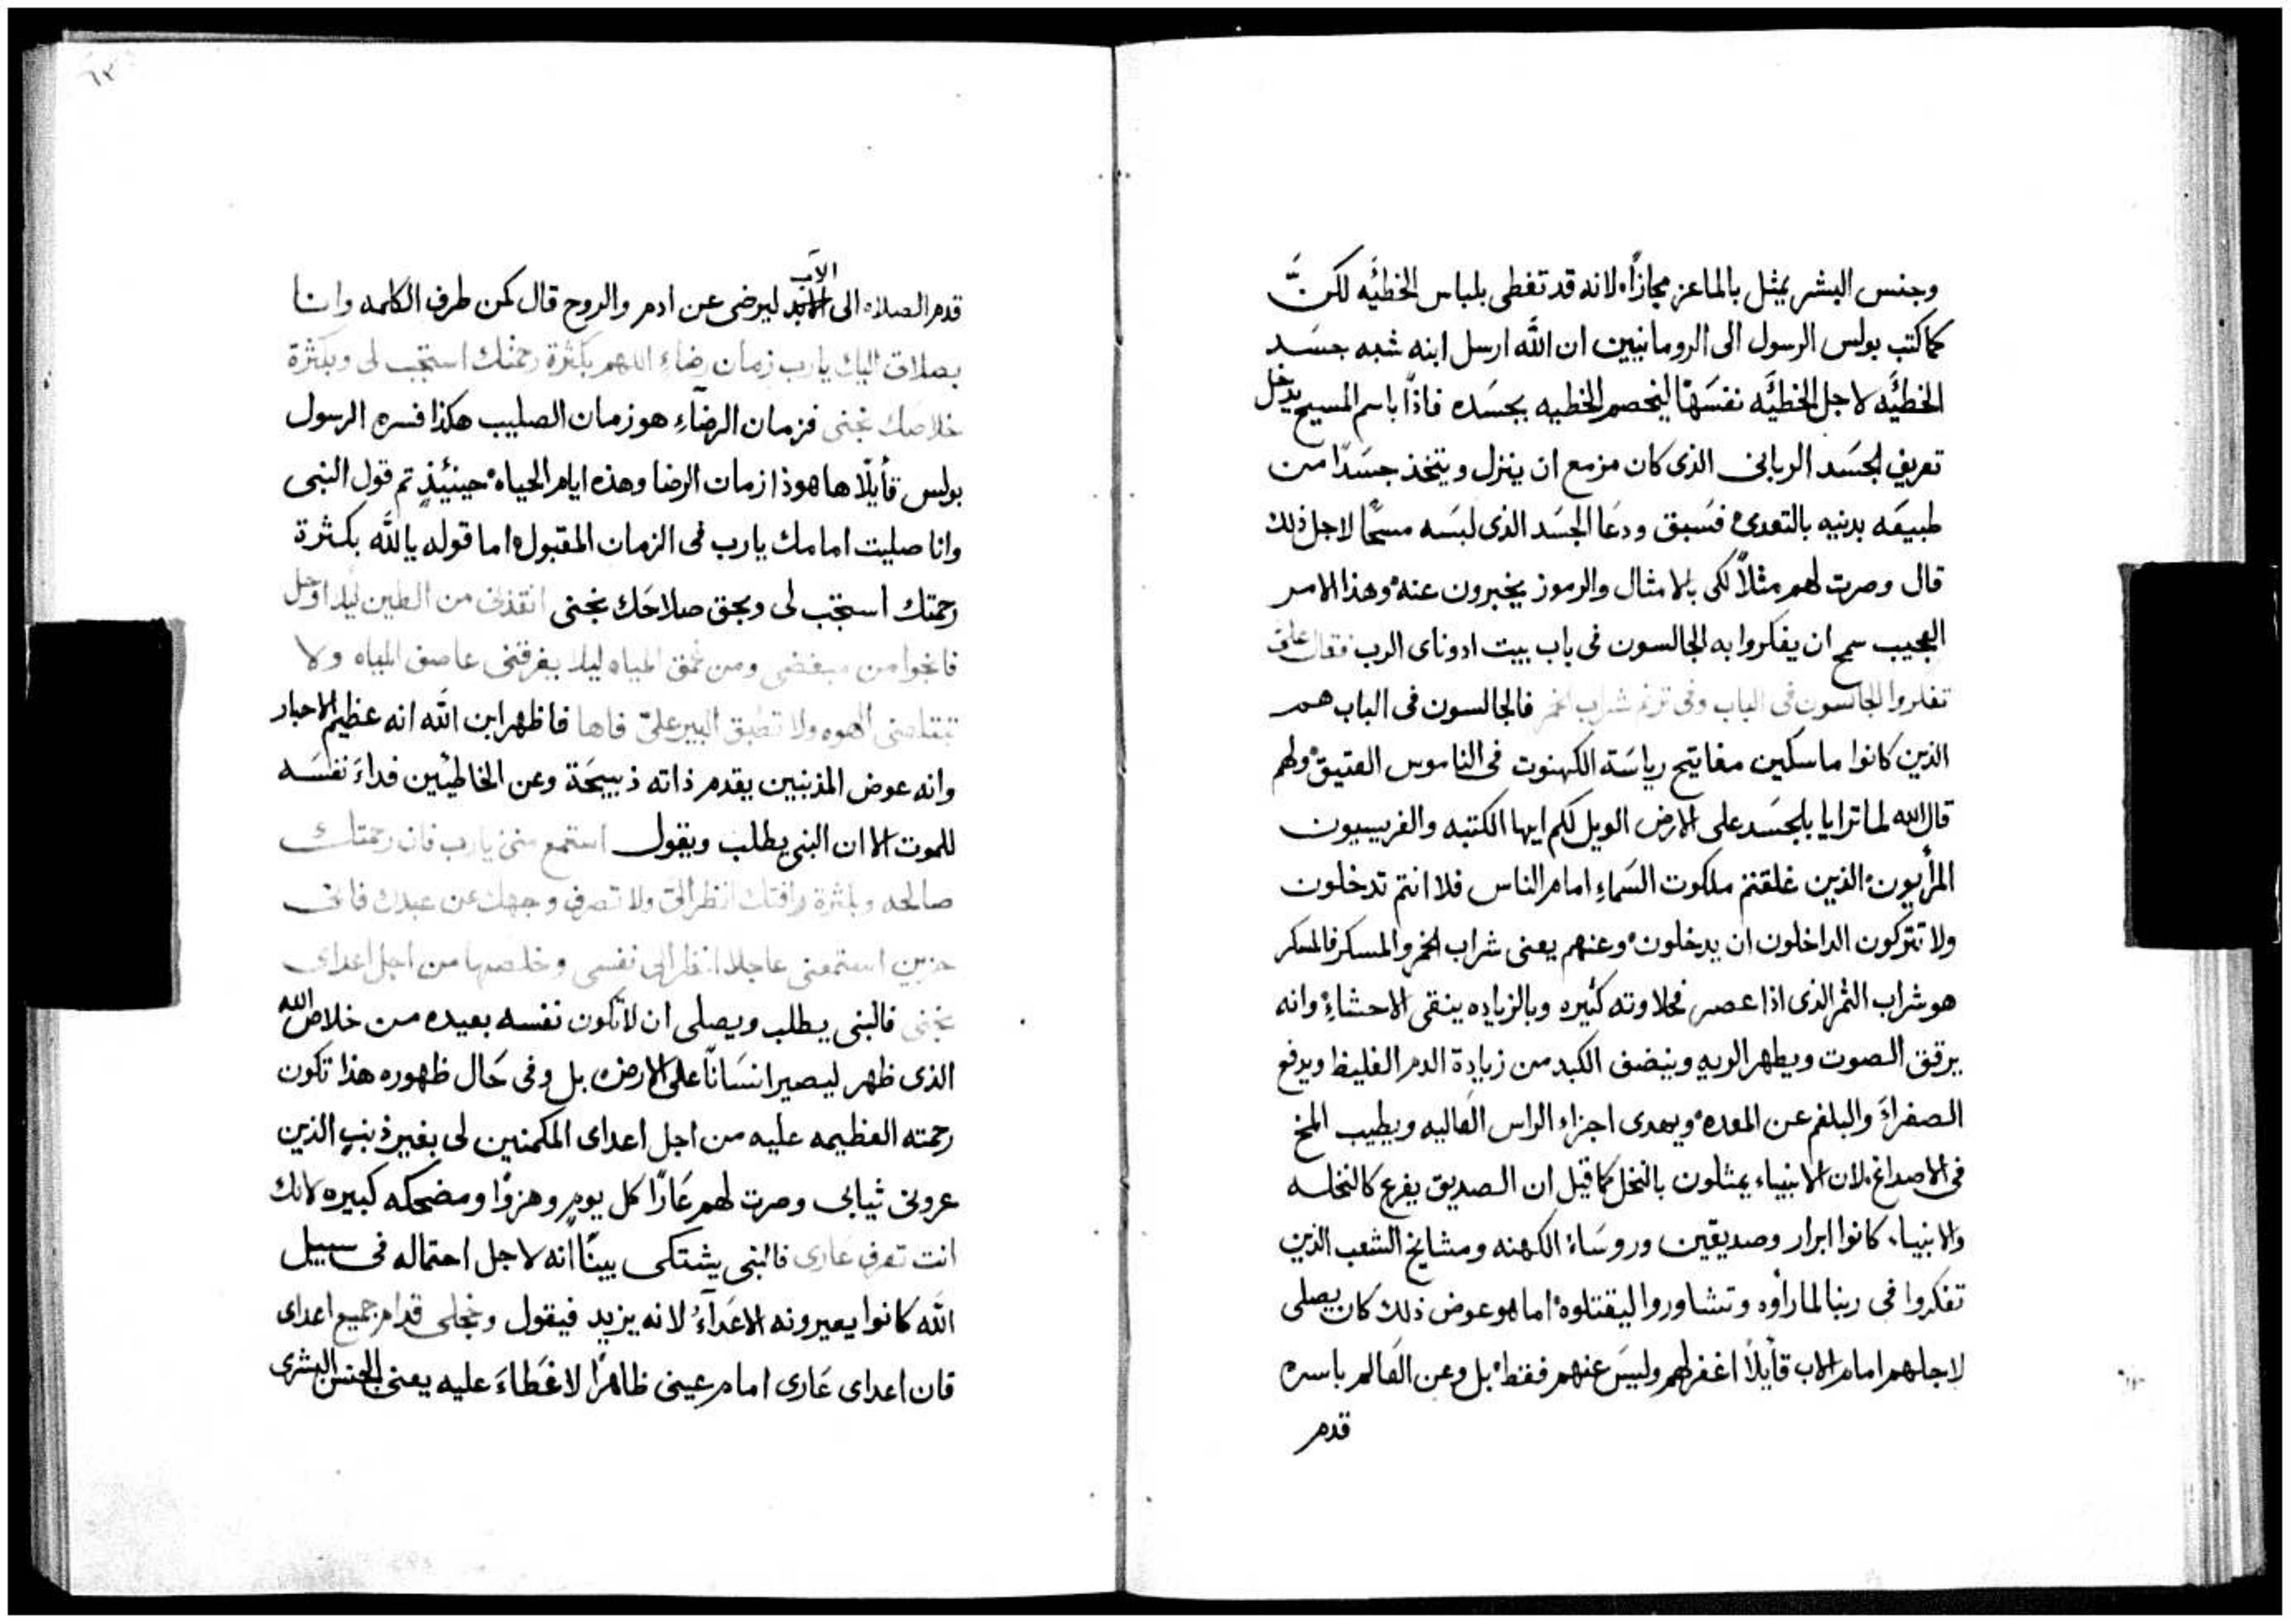 وجنس البشر يمثل بالماعز مجازًا، لانه قد تغطى بلباس الخطيَّه لكنَّ
كما كتب بولس الرسول الى الرومانيين ان الله ارسل ابنه شبه جسَد
الخطيَّه لاجل الخطيَّه نفسَهَا ليخصم الخطيه بجسَده فاذًا باسم المسيح يدخل
تعريف لجسَد الربانى الذى كان مزمع ان ينزل ويتخذ جسَدًا من
طبيعَه بدنيه بالتعدى فسَبق ودعَا الجسَد الذى لبسَه مسحًا لاجل ذلك
قال وصرت لهم مثلاً لكى بالامثال والرموز يخبرون عنه وهذا الامر
العجيب سمح ان يفكروا به الجالسون فى باب بيت ادوناى الرب فقال علىّ
تفكروا الجالسون فى الباب وفى ترنم شراب الخمر فالجالسون فى الباب هم
الذين كانوا ماسكين مفاتيح رياسَة الكهنوت فى الناموس العتيق ولهم
قال الله لما ترايا بالجسَد على الارض الويل لكم ايها الكتبه والفريسيون
المرأيون الذين غلقتم ملكوت السَماءِ امام الناس فلا انتم تدخلون
ولا تتركون الداخلون ان يدخلون وعنهم يعنى شراب الخمر والمسكر فالمسكر
هو شراب الثمر الذى اذا عصر فحلاوته كثيره وبالزياده ينقى الاحشاءِ وانه
يرقق الصوت ويطهر الريه وينضف الكبد من زيادة الدم الغليظ ويدفع
الصفراءَ والبلغم عن المعده ويهدى اجزاء الراس العاليه ويطيب المخ
فى الاصداغ، لان الانبياء يمثلون بالنخل كما قيل ان الصديق يفرع كالنخله
والانبياء كانوا ابرار وصديقين وروسَاء الكهنه ومشايخ الشعب الذين
تفكروا فى ربنا لما رأوه وتشاوروا ليقتلوه اما هو عوض ذلك كان يصلى
لاجلهم امام الاب قايلاً اغفر لهم وليسَ عنهم فقط بل وعن العَالم باسره
قدم
٦٣
قدم الصلاه الى الآب ليرضى عن ادم والروح قال كمن طرف الكلمه وانا
بصلاتى اليك يارب زمان رضاءِ اللهم بكثرة رحمتك استجب لى وبكثرة
خلاصك نجنى فزمان الرضآءِ هو زمان الصليب هكذا فسره الرسول
بولس قأيلًا ها هوذا زمان الرضا وهذه ايام الحياه حينيئذٍ تم قول النبى
وانا صليت امامك يارب فى الزمان المقبول اما قوله يا اللَّه بكثرة
رحمتك استجب لى وبحق صلاحَك نجنى انقذنى من الطين ليلا اوحل
فانجوا من مبغضى ومن عمق المياه ليلا يغرقنى عاصف المياه ولا
تبتلعنى الهوه ولا تطبق البير علىّ فاها فاظهر ابن اللَّه انه عظيم الاحبار
وانه عوض المذنبين يقدم ذاته ذبيحَة وعن الخاطيئين فداءَ نفسَه
للموت الا ان النبى يطلب ويقول استمع منى يارب فان رحمتك
صالحه وبكثرة رافتك انظر الىّ ولا تصرف وجهك عن عبدك فانى
حزين استمعنى عاجلا انظر الى نفسى وخلصها من اجل اعداى
نجنى فالنبى يطلب ويصلى ان لا تكون نفسه بعيده من خلاص الله
الذى ظهر ليصير انسَانًا على الارض، بل وفى حَال ظهوره هذا تكون
رحمته العظيمه عليه من اجل اعداى المكمنين لى بغير ذنبٍ الذين
عرونى ثيابى وصرت لهم عَارًا كل يومٍ وهزوًا ومضحكه كبيره لانك
انت تعرف عَارى فالنبى يشتكى بينًا انه لاجل احتماله فى سبيل
اللَّه كانوا يعيرونه الاعَدآءُ لانه يزيد فيقول وخجلى قدام جميع اعداى
فان اعداى عَارى امام عينى ظاهرًا لا غطَاءَ عليه يعنى الجنس البشرى